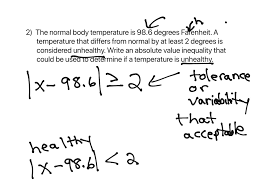 2) The normal body temperature is 98.6 degrees Farenheit. A
temperature that differs from normal by at least 2 degrees is
considered unhealthy. Write an absolute value inequality that
could be used to determine if a temperature is unhealthy.
|x-98.6| ≥ 2
tolerance
or
variability
that
acceptable
healthy
|x-98.6| < 2